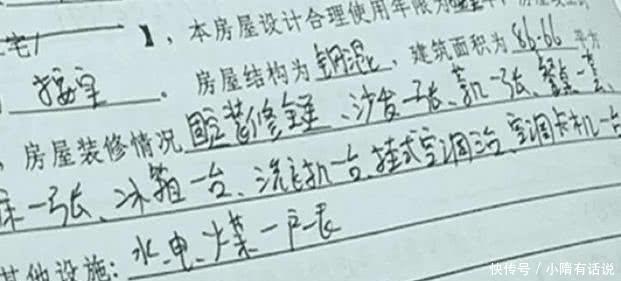 宅/ 】,本房屋设计合理使用年限为
房屋结构为钢混,建筑面积为86.66平方
,房屋装修情况固装修全,沙发一张、茶几一张、餐桌一套、
床一张、冰箱一台、洗衣机一台、挂式空调 台、空调 机一台
其他设施:水、电、火 一户一表
快传号/小隋有话说